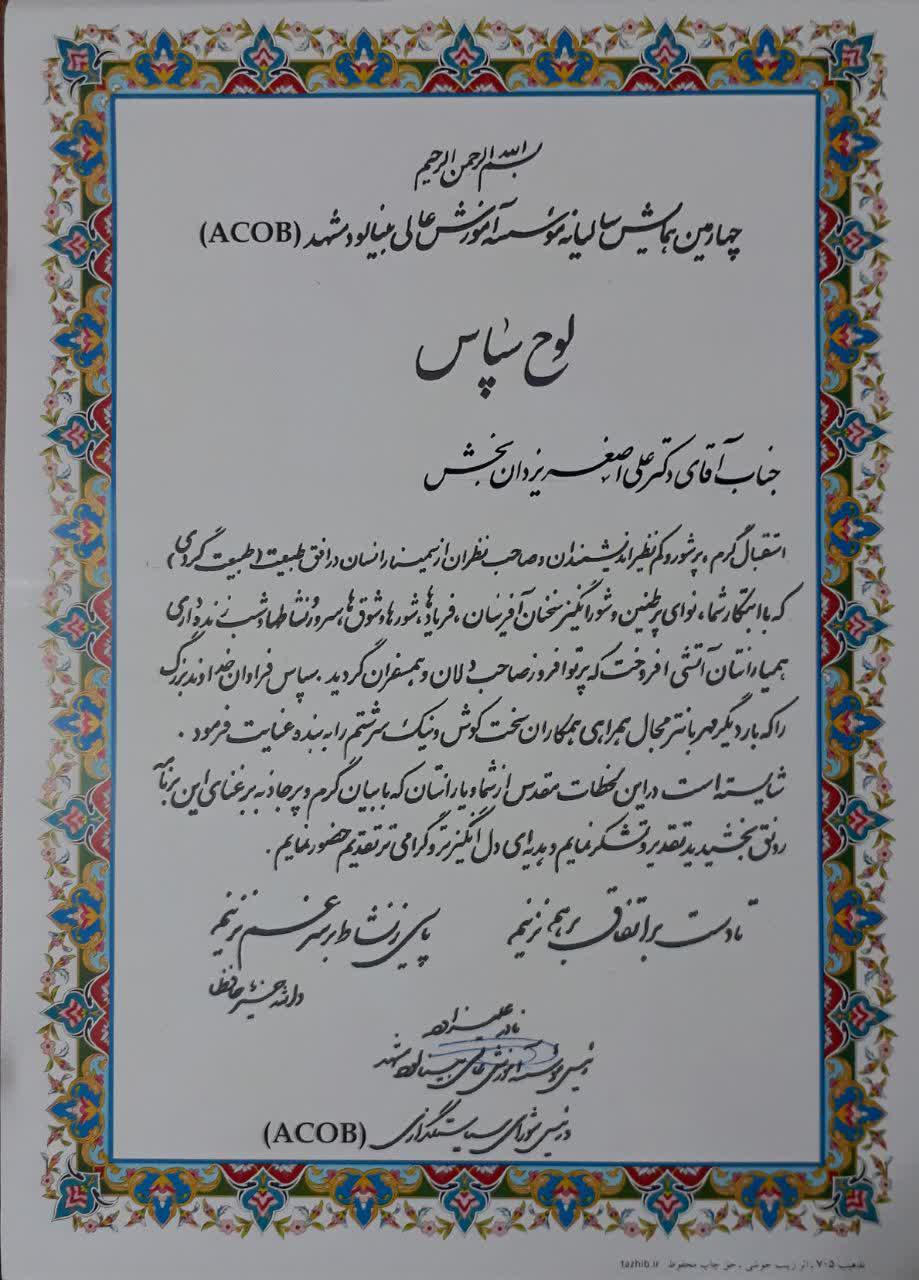 بسم الله الرحمن الرحیم
چهارمین همایش سالیانه مؤسسه آموزش عالی بینالود مشهد (ACOB)
لوح سپاس
جناب آقای دکتر علی اصغر یزدان بخش
استقبال گرم، پرشور و کم نظیر اندیشمندان و صاحب نظران از سمینار انسان در افق طبیعت (طبیعت گردی)
که با ابتکار شما، نوای پرطنین و شورانگیز سخنان آفرینتان، فریادها، شورها و شوق ها، سرور و نشاطها و شب زنده داری
همیارانتان آتشی افروخت که پرتو افروز صاحب دلان و همسفران گردید. سپاس فراوان خداوند بزرگ
را که بار دیگر مهربانتر مجال همراهی همکاران سخت کوش و نیک سرشتم را به بنده عنایت فرمود.
شایسته است در این لحظات مقدس از شما و یارانتان که با بیان گرم و پرجاذبه بر غنای این برنامه
رونق بخشیدید تقدیر و تشکر نمایم و هدیه ای دل انگیزتر و گرامی تر تقدیم حضور نمایم.
تا دست به اتفاق بر هم نزنیم پایی ز نشاط بر سر غم نزنیم
نادر علیزاده
رئیس مؤسسه آموزش عالی بینالود مشهد
و رئیس شورای سیاستگزاری (ACOB)
تذهیب ۷۰۵ ، اثر زینب خوشی ، حق چاپ محفوظ tazhib.ir